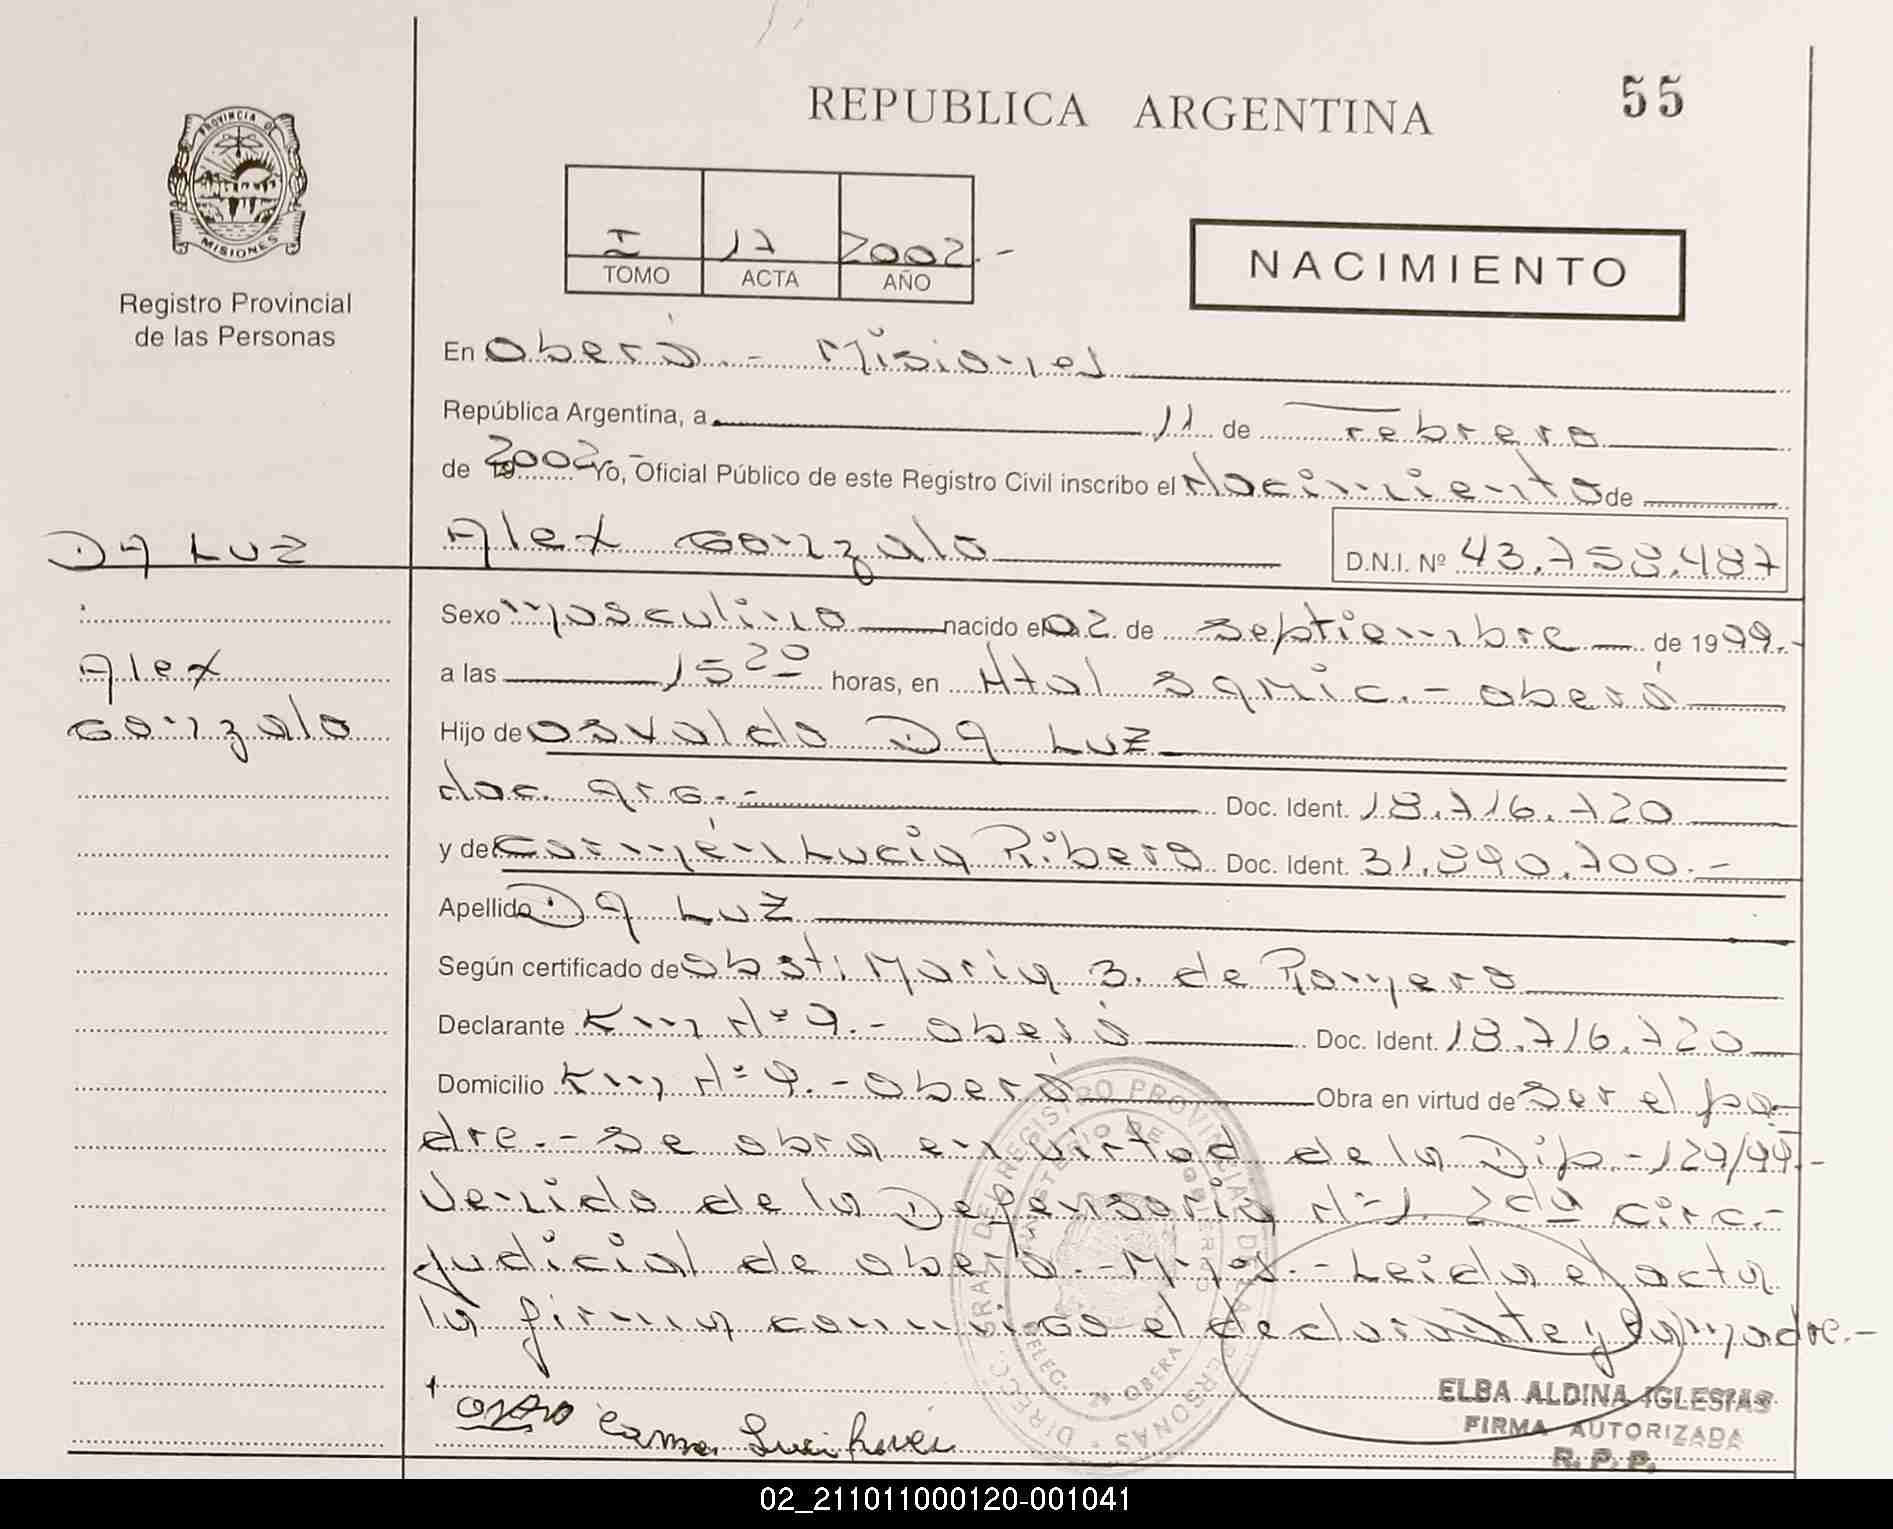 REPUBLICA ARGENTINA
55
PROVINCIA DE
MISIONES
Registro Provincial
de las Personas
I 17 2002.-
TOMO ACTA AÑO
NACIMIENTO
En Oberá.- Misiones
República Argentina, a 11 de Febrero
de 2002 Yo, Oficial Público de este Registro Civil inscribo el Nacimiento de
DA LUZ
Alex Gonzalo
D.N.I. Nº 43.758.487
Alex
Gonzalo
Sexo masculino nacido el 02 de septiembre de 1999.-
a las 15 20 horas, en Htal Samic.- Oberá
Hijo de Osvaldo Da Luz
doc. arg.- Doc. Ident. 18.716.720
y de Carmen Lucia Ribero Doc. Ident. 31.890.700.-
Apellido Da Luz
Según certificado de obst. Maria B. de Romero
Declarante Km Nº 9.- Oberá Doc. Ident. 18.716.720
Domicilio Km Nº 9.- Oberá Obra en virtud de ser el pa-
dre.- Se obra en virtud de la Disp.- 129/99.-
Venido de la Defensoria Nº 1. 2da circ.-
judicial de Oberá.- Mnes.- Leida el acta
la firman conmigo el declarante y la madre.-
DIRECC. GRAL. DEL REGISTRO PROVINCIAL DE LAS PERSONAS
MINISTERIO DE GOBIERNO
DELEG. OBERA
ELBA ALDINA IGLESIAS
FIRMA AUTORIZADA
R. P. P.
02_211011000120-001041